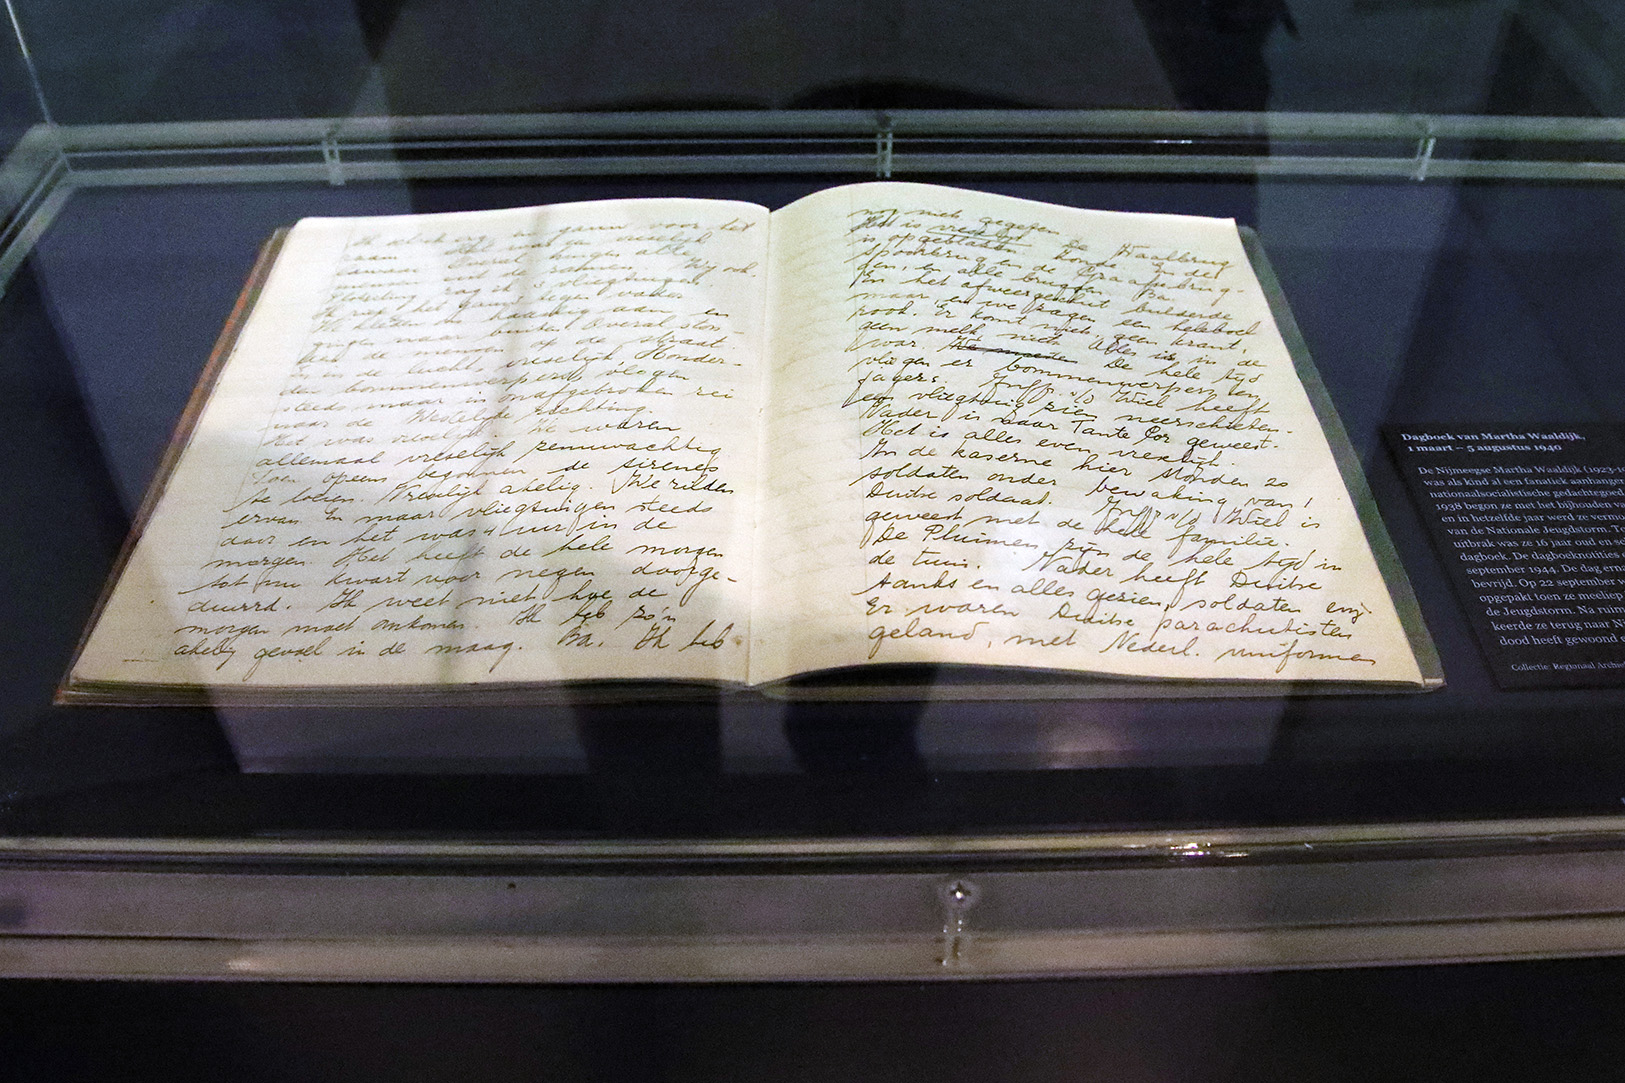 raam. Het was een vreselijk
lawaai. Overal hingen alle
mensen uit de ramen. Wij ook.
Plotseling zag ik 3 vliegtuigen.
Ik riep het gauw tegen vader
We kleedden ons haastig aan en
gingen naar buiten. Overal ston-
den de mensen op de straat.
in de lucht vreselijk. Honder-
den bommenwerpers vlogen
steeds maar in onafgebroken rei
naar de Westelijke richting.
Het was vreselijk. We waren
allemaal vreselijk zenuwachtig
Toen opeens begonnen de sirenes
te loeien. Vreselijk akelig. We rilden
ervan. En maar vliegtuigen steeds
door en het was 4 uur in de
morgen. Het heeft de hele morgen
tot nu kwart voor negen doorge-
duurd. Ik weet niet hoe de
morgen moet omkomen. Ik heb zo'n
akelig gevoel in de maag. Ba. Ik heb
nog niet gegeten.
Het is vreselijk. De Waalbrug
is opgeblazen. En de
spoorbrug en de Graafsebrug-
gen, en alle bruggen. Ba.
En het afweergeschut bulderde
maar, en we zagen een heleboel
rook. Er komt niet geen krant,
geen melk niets. Alles is in de
war. De hele tijd
vliegen er bommenwerpers en
jagers. Juff. v/d Wiel heeft
een vliegtuig zien neerschieten.
Vader is naar Tante Cor geweest.
Het is alles even vreselijk.
In de kaserne hier stonden 20
soldaten onder bewaking van 1
Duitse soldaat. Juff. v/d Wiel is
geweest met de hele familie.
De Pluimen zijn de hele tijd in
de tuin. Vader heeft Duitse
tanks en alles gezien, soldaten enz.
Er waren Duitse parachutisten
geland, met Nederl. uniformen
Dagboek van Martha Waaldijk,
1 maart – 5 augustus 1940
De Nijmeegse Martha Waaldijk (1923-
was als kind al een fanatiek aanhanger
nationaalsocialistische gedachtegoed.
1938 begon ze met het bijhouden va
en in hetzelfde jaar werd ze
van de Nationale Jeugdstorm.
uitbrak was ze 16 jaar oud en
dagboek. De dagboeknotities
september 1944. De dag
bevrijd. Op 22 september
opgepakt toen ze
de Jeugdstorm. Na
keerde ze terug naar
dood heeft gewoond
Collectie: Regionaal